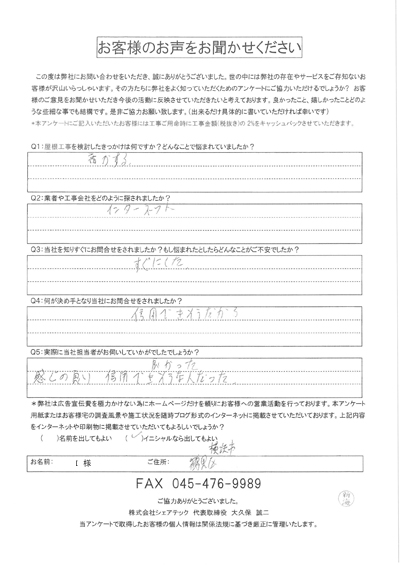 お客様のお声をお聞かせください
この度は弊社にお問い合わせをいただき、誠にありがとうございました。世の中には弊社の存在やサービスをご存知ないお
客様が沢山いらっしゃいます。その方たちに弊社をよく知っていただくためのアンケートにご協力いただけるでしょうか？ お客
様のご意見をお聞かせいただき今後の活動に反映させていただきたいと考えております。良かったこと、嬉しかったことどのよ
うな些細な事でも結構です。是非ご協力お願い致します。（出来るだけ具体的に書いていただければ幸いです）
*本アンケートにご記入いただいたお客様には工事ご用命時に工事金額(税抜き)の2%をキャッシュバックさせていただきます。
Q1:屋根工事を検討したきっかけは何ですか？どんなことで悩まれていましたか？
音がする
Q2:業者や工事会社をどのように探されましたか？
インターネット
Q3:当社を知りすぐにお問合せをされましたか？もし悩まれたとしたらどんなことがご不安でしたか？
すぐにした。
Q4:何が決め手となり当社にお問合せをされましたか？
信用できそうだから
Q5:実際に当社担当者がお伺いしていかがでしたでしょうか？
良かった
感じの良い 信用できそうな人だった。
*弊社は広告宣伝費を極力かけない為にホームページだけを頼りにお客様への営業活動を行っております。本アンケート
用紙またはお客様宅の調査風景や施工状況を随時ブログ形式のインターネットに掲載させていただいております。上記内容
をインターネットや印刷物に掲載させていただいてもよろしいでしょうか？
（ ）名前を出してもよい （✓）イニシャルなら出してもよい
横浜市
お名前： I 様 ご住所： 鶴見区
FAX 045-476-9989
ご協力ありがとうございました。
株式会社シェアテック 代表取締役 大久保 誠二
当アンケートで取得したお客様の個人情報は関係法規に基づき厳正に管理いたします。